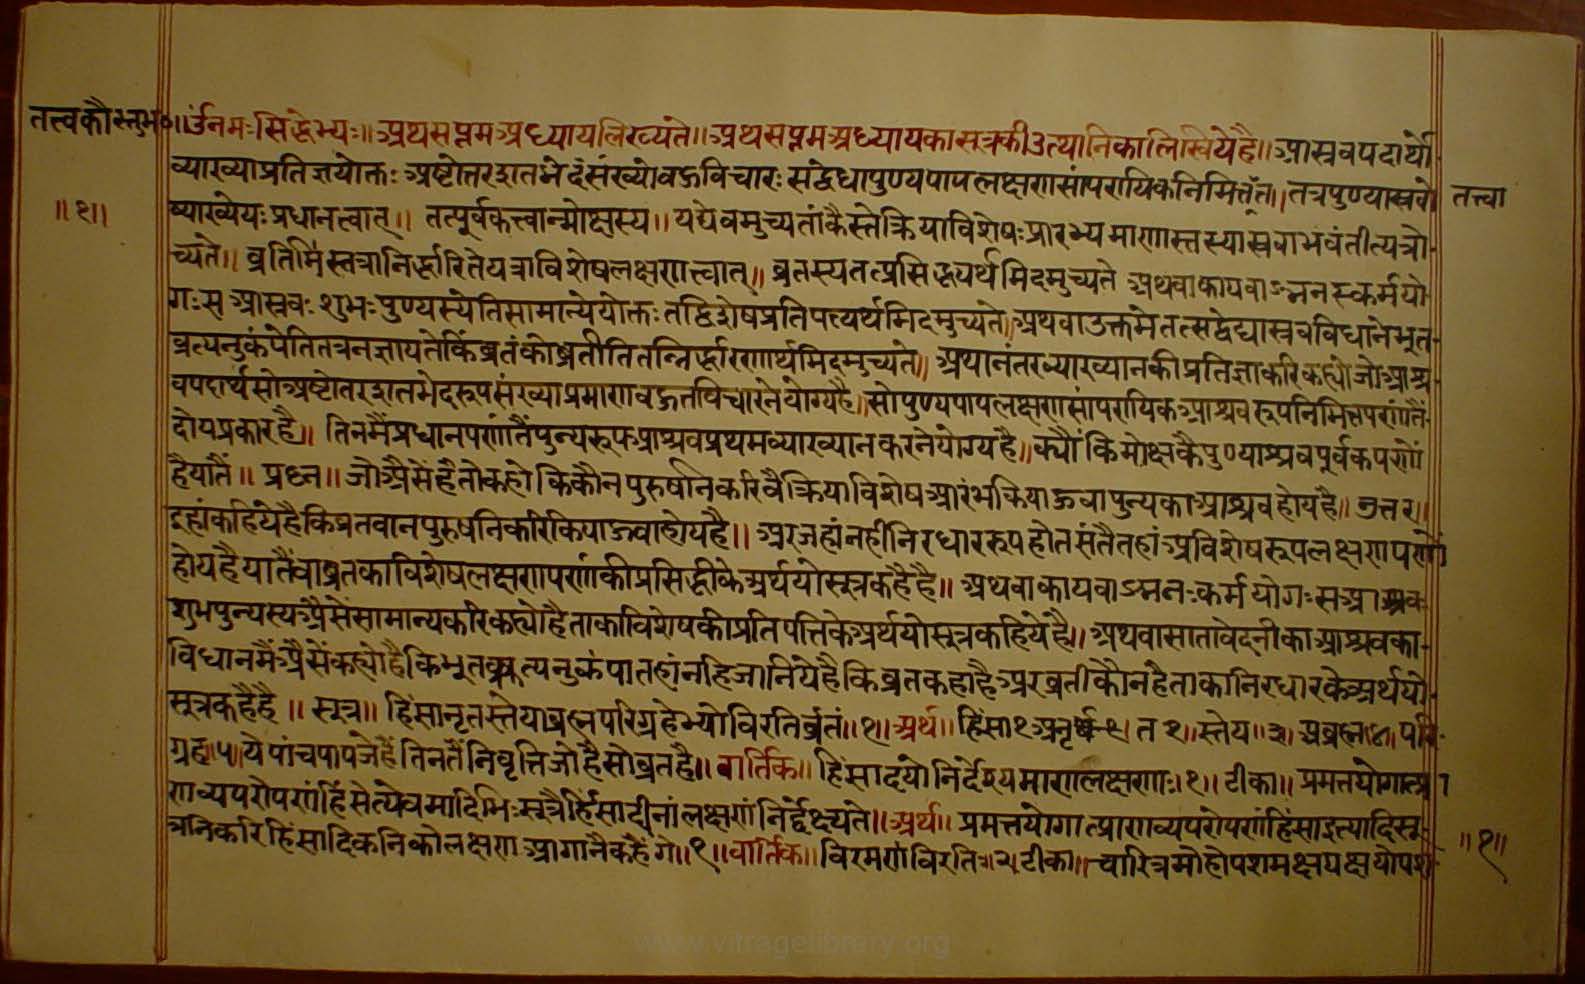 तत्त्वकौस्तुभ०
॥ उँनमःसिद्धेभ्यः॥ अथसप्तमअध्यायलिख्यते॥ अथसप्तमअध्यायकासूत्रकीउत्थानिकालिखियेहै॥ आस्रवपदार्थो
व्याख्याप्रतिज्ञयोक्तः अष्टोत्तरशतभेदसंख्योवऊविचारः सद्वेधापुण्यपापलक्षणसांपरायिकनिमित्तंत॥ तत्रपुण्यास्रवो
तत्त्वा
॥१॥
व्याख्येयःप्रधानत्वात्॥ तत्पूर्वकत्वान्मोक्षस्य॥ यद्येवमुच्यतांकैस्तेक्रियाविशेषःप्रारभ्यमाणास्तस्यास्रवाभवंतीत्यत्रो
च्यते॥ व्रतिभिस्तत्रानिर्द्धारितेयत्राविशेषलक्षणत्त्वात्॥ व्रतस्यतत्प्रसिद्ध्यर्थमिदमुच्यते अथवाकायवाङ्मनस्कर्मयो
गःस आस्रवःशुभःपुण्यस्येतिसामान्येयोक्तःतद्विशेषप्रतिपत्त्यर्थमिदमुच्यते॥ अथवाउक्तमेतत्सद्वेद्यास्रवविधानेभूत
व्रत्यनुकंपेतितत्रनज्ञायतेकिंव्रतंकोव्रतीतितन्निर्द्धारणार्थमिदमुच्यते॥ अथानंतरव्याख्यानकीप्रतिज्ञाकरिकह्योजोआश्र
वपदार्थसोअष्टोतरशतभेदरूपसंख्याप्रमाणवऊतविचारनेयोग्यहै॥ सोपुण्यपापलक्षणसांपरायिकआश्रवरूपनिमित्तपणांतैं
दोयप्रकारहै॥ तिनमैंप्रधानपणांतैंपुन्यरूपआश्रवप्रथमव्याख्यानकरनेयोग्यहै॥ क्यौंकिमोक्षकैपुण्याश्रवपूर्वकपणों
हैयातैं॥ प्रश्न॥ जोअैसेंहैतोकहोकिकौनपुरुषनिकरिवैक्रियाविशेषआरंभकियाऊवापुन्यकाआश्रवहोयहै॥ उत्तर॥
इहांकहियेहैकिव्रतवानपुरुषनिकरिकियाऊवाहोयहै॥ अरजहांनहीनिरधाररूपहोतसंतैतहांअविशेषरूपलक्षणपणों
होयहैयातैंवाव्रतकाविशेषलक्षणपणांकीप्रसिद्धीकेअर्थयोसूत्रकहैहै॥ अथवाकायवाङ्मनःकर्मयोगःसआश्रव
शुभपुन्यस्यअैसेसामान्यकरिकह्योहैताकाविशेषकीप्रतिपत्तिकेअर्थयोसूत्रकहियेहै॥ अथवासातावेदनीकाआश्रवका
विधानमैंअैसेंकह्योहैकिभूतव्रत्यनुकंपातहांनहिजानियेहैकिव्रतकहाहैअरव्रतीकौनहैताकानिरधारकेअर्थयो
सूत्रकहैहै॥ सूत्र॥ हिंसानृतस्तेयाब्रह्मपरिग्रहेभ्योविरतिर्व्रतं॥१॥ अर्थ॥ हिंसा१अनृ त२॥स्तेय॥३॥अब्रह्म॥४॥परि
ग्रह॥५॥येपांचपापजेहैंतिनतैंनिवृत्तिजोहैसोव्रतहै॥ वार्तिक॥ हिंसादयोनिर्देश्यमाणलक्षणाः॥१॥ टीका॥ प्रमत्तयोगात्प्रा
णव्यपरोपणंहिंसेत्येवमादिभिःसूत्रैर्हिंसादीनांलक्षणंनिर्द्देक्ष्यते॥ अर्थ॥ प्रमत्तयोगात्प्राणव्यपरोपणंहिंसाइत्यादिसू
त्रनिकरिहिंसादिकनिकोलक्षणआगानैकहैंगे॥१॥ वार्तिक॥ विरमणंविरतिः॥२॥ टीका॥ चारित्रमोहोपशमक्षयक्षयोपश
॥१॥
www.vitragelibrary.org